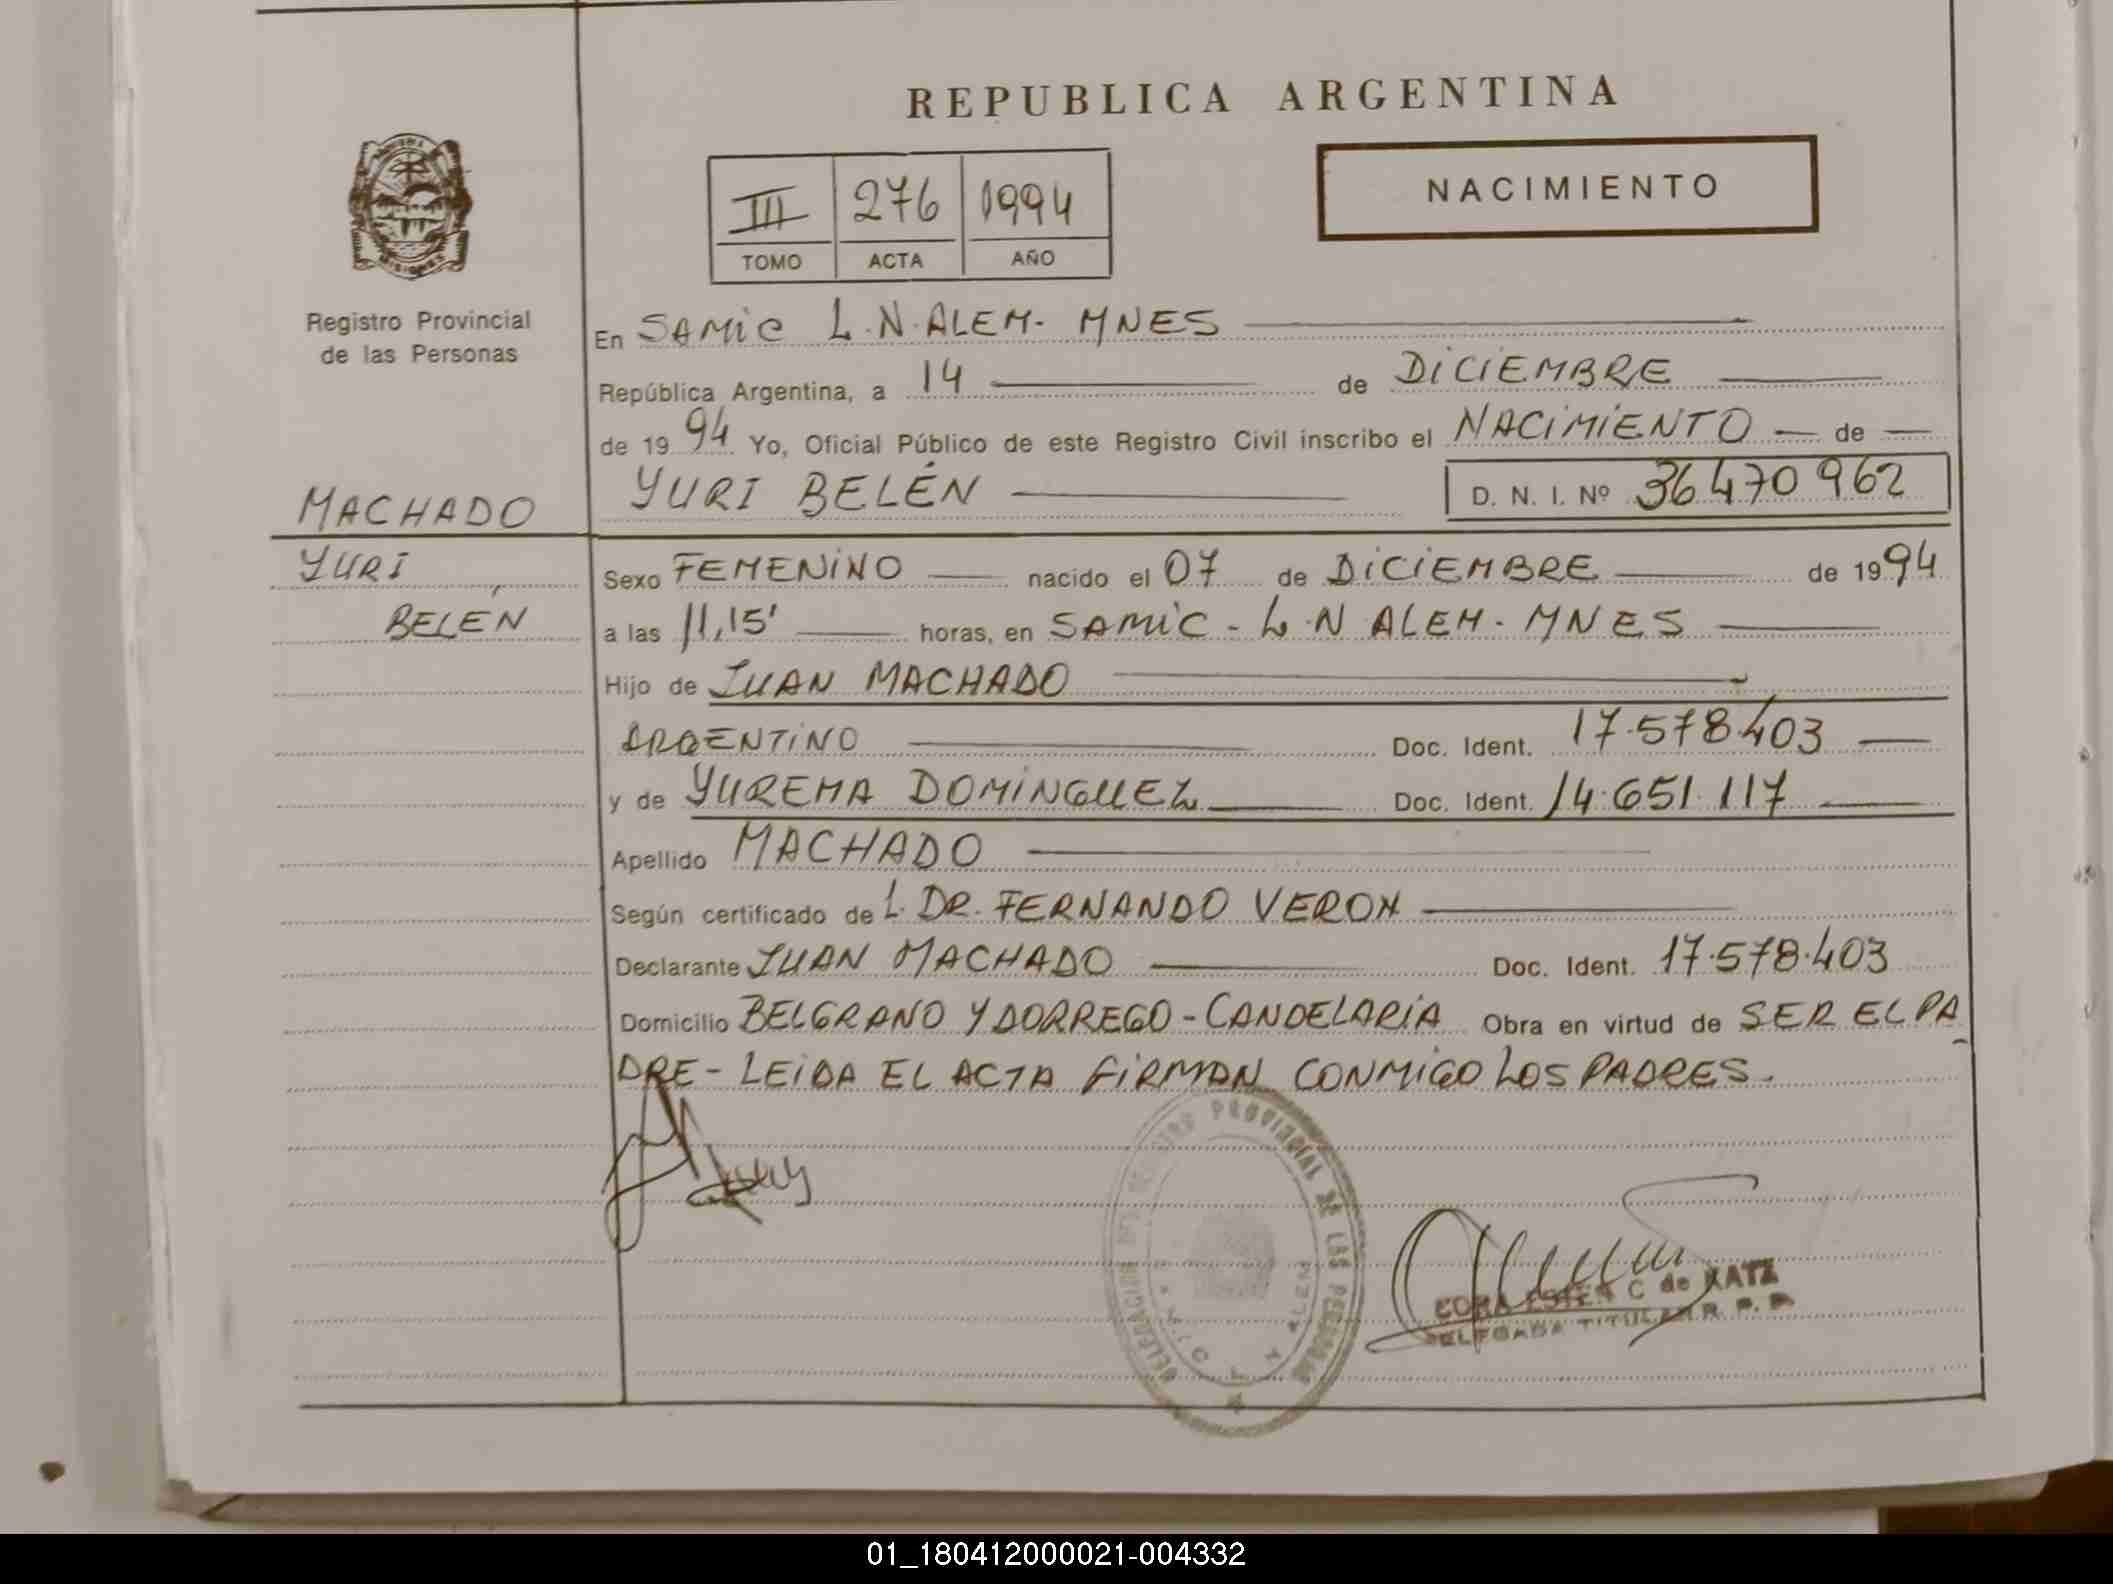 REPUBLICA ARGENTINA
NACIMIENTO
III 276 1994
TOMO ACTA AÑO
MISIONES
Registro Provincial
de las Personas
MACHADO
YURI
BELÉN
En SAMIC L.N.ALEM- MNES
República Argentina, a 14 de DICIEMBRE
de 19 94 Yo, Oficial Público de este Registro Civil inscribo el NACIMIENTO de
YURI BELÉN D. N. I. Nº 36470962
Sexo FEMENINO nacido el 07 de DICIEMBRE de 19 94
a las 11,15' horas, en SAMIC - L.N ALEM - MNES
Hijo de JUAN MACHADO
ARGENTINO Doc. Ident. 17.578.403
y de YUREMA DOMINGUEZ Doc. Ident. 14.651.117
Apellido MACHADO
Según certificado de L. DR. FERNANDO VERON
Declarante JUAN MACHADO Doc. Ident. 17.578.403
Domicilio BELGRANO Y DORREGO - CANDELARIA Obra en virtud de SER EL PA
DRE - LEIDA EL ACTA FIRMAN CONMIGO LOS PADRES.
DELEGACION DEL REGISTRO PROVINCIAL DE LAS PERSONAS
L N ALEM
C de KATZ
DELEGADA TITULAR R. P. P.
01_180412000021-004332